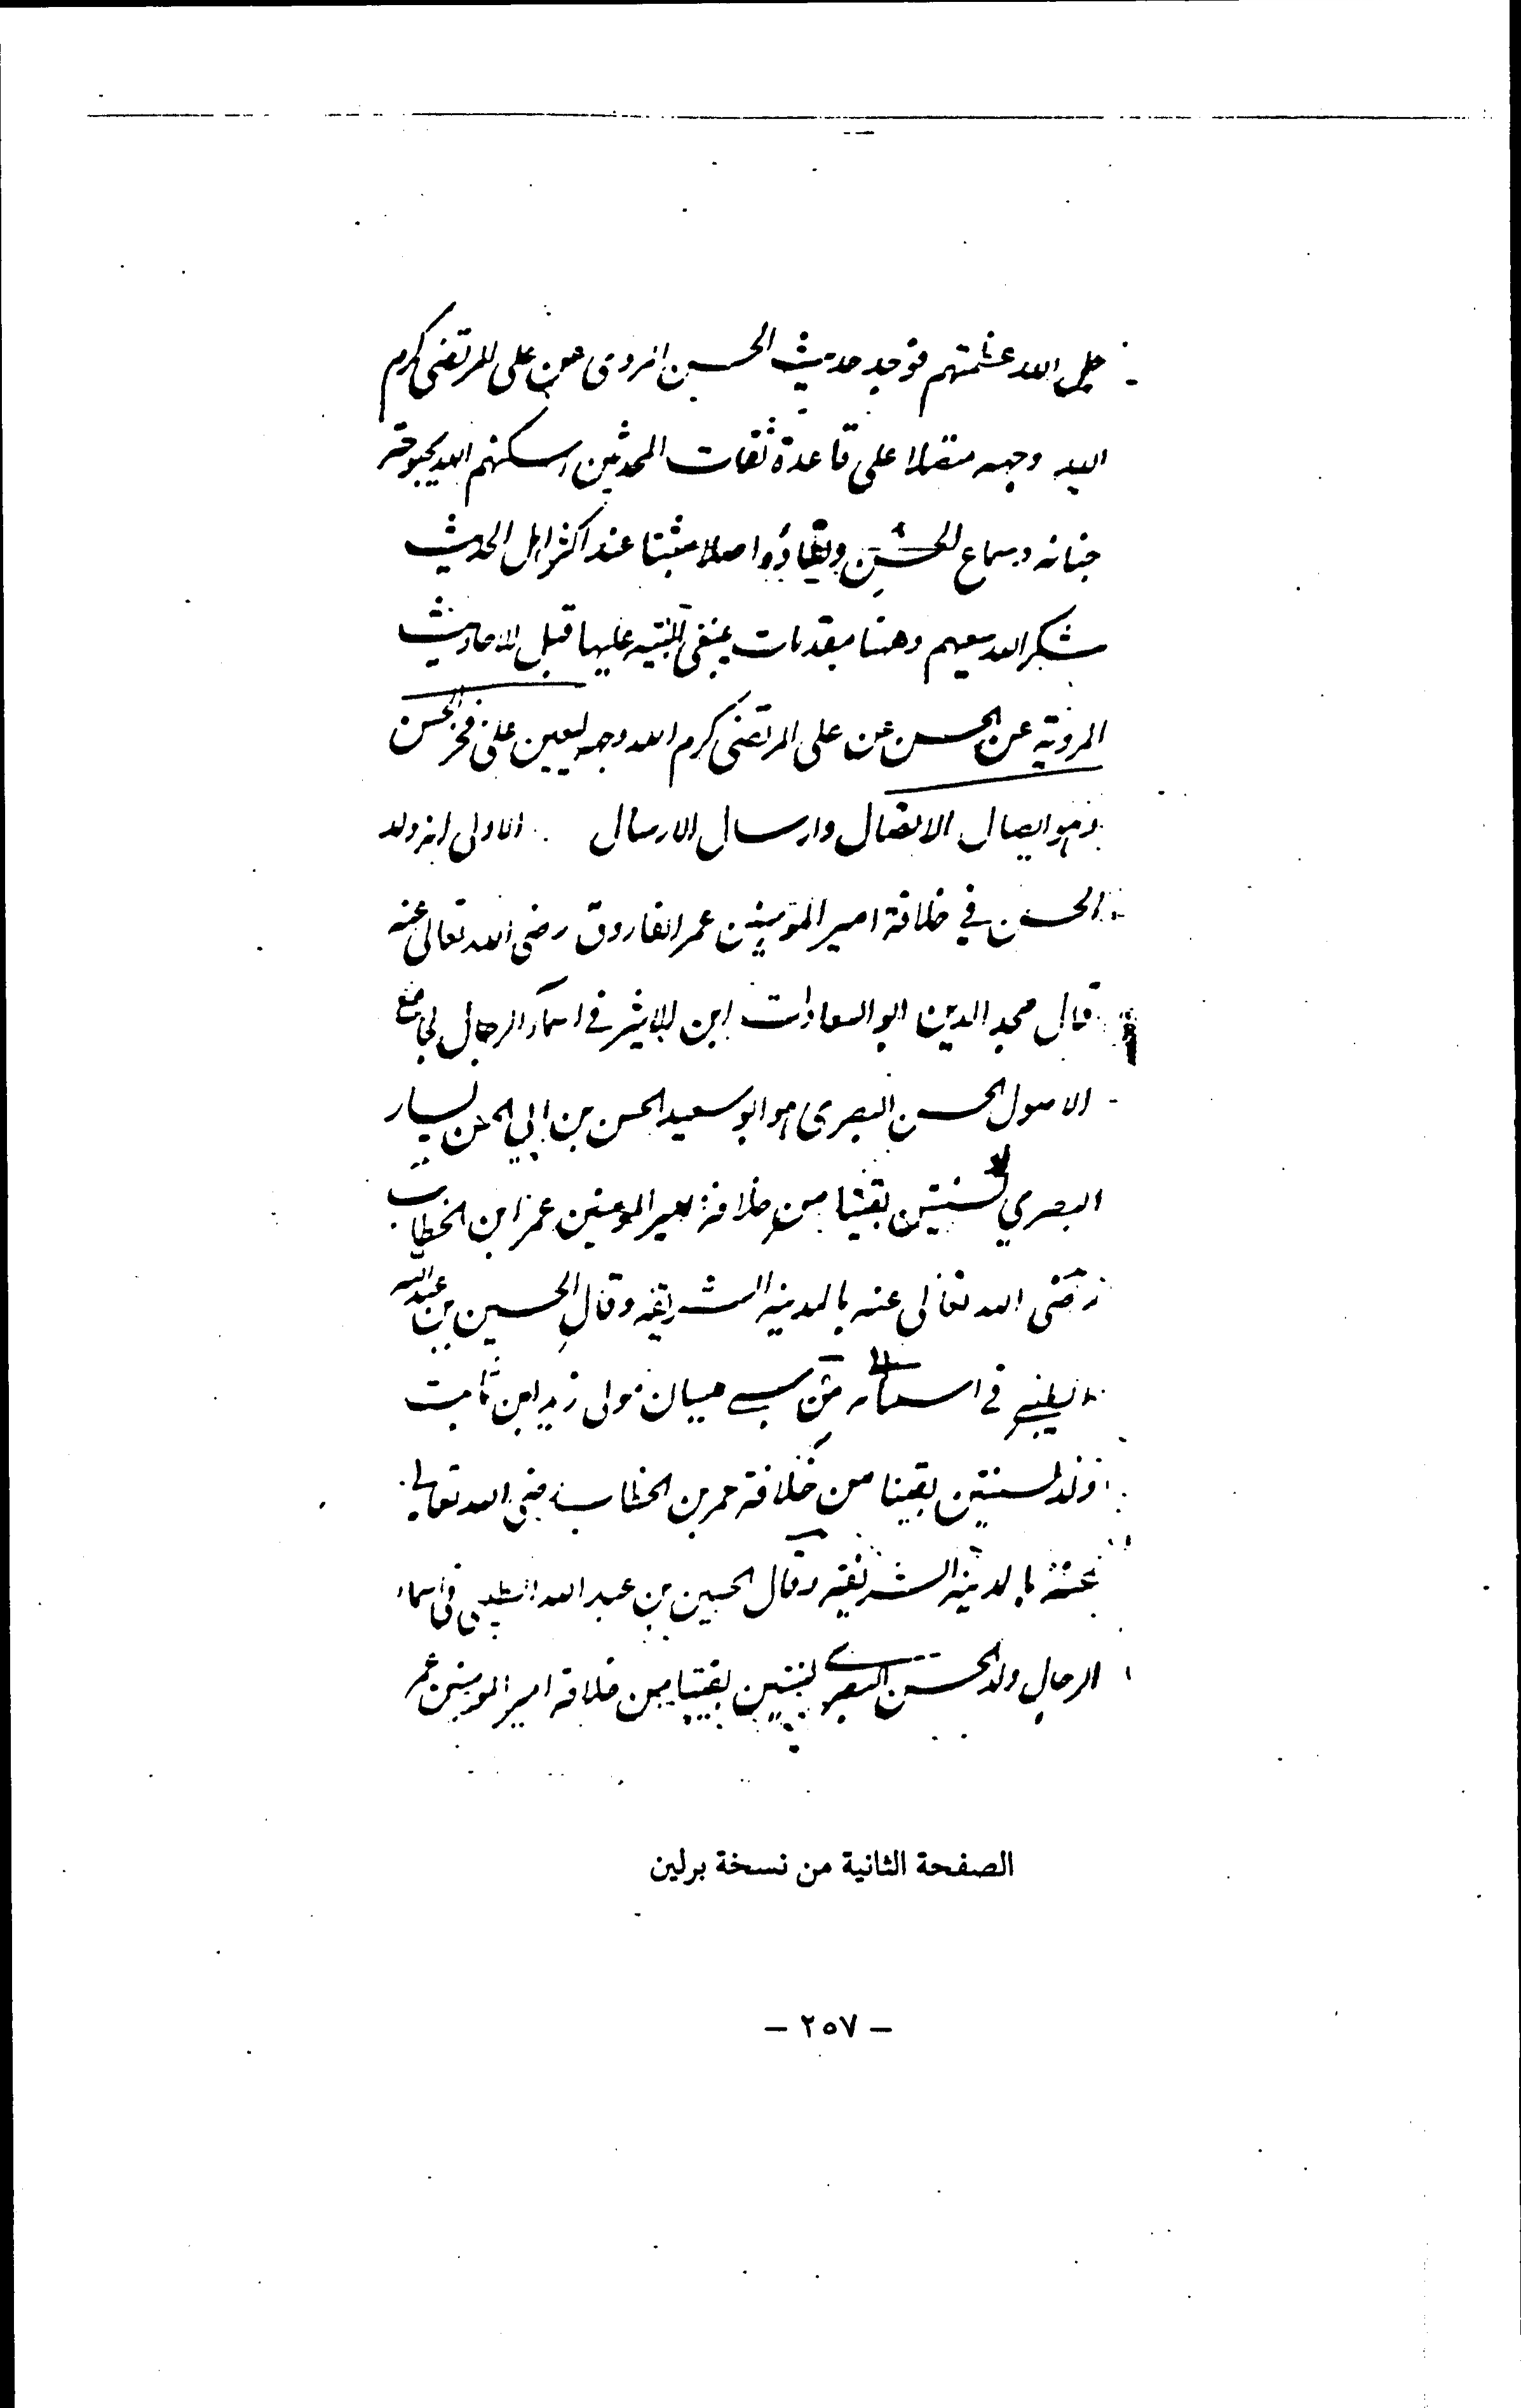 جلى الله عظمتهم فوجد حديث الحسن المروى عن على المرتضى كرم
الله وجهه متصلا على قاعدة ثقات المحدثين اسكنهم الله بحبوحة
جنانه وسماع الحسن ولقاؤه اصلا مثبتا عند اكثر اهل الحديث
شكر الله سعيهم وهنا مقدمات ينبغى التنبيه عليها قبل الاحاديث
المروية عن الحسن عن على المرتضى كرم الله وجهه ليعين على فخر الحسن
وهو ايصال الاتصال وارسال الارسال الاولى انه ولد
الحسن في خلافة امير المؤمنين عمر الفاروق رضى الله تعالى عنه
قال مجد الدين ابو السعادات ابن الاثير في اسماء الرجال لجامع
الاصول الحسن البصرى هو ابو سعيد الحسن بن ابي الحسن يسار
البصري ولد لسنتين بقيتا من خلافة امير المومنين عمر ابن الخطاب
رضى الله تعالى عنه بالمدينه الشريفه وقال الحسين بن عبد الله
في اسمائه من سبى ميسان مولى زيد ابن ثابت
ولد لسنتين بقيتا من خلافة عمر بن الخطاب رضى الله تعالى
عنه بالمدينه الشريفه وقال الحسين بن عبد الله الطيبى في اسماء
الرجال ولد الحسن البصرى لسنتين بقيتا من خلافة امير المومنين عمر
الصفحة الثانية من نسخة برلين
– ٢٥٧ –